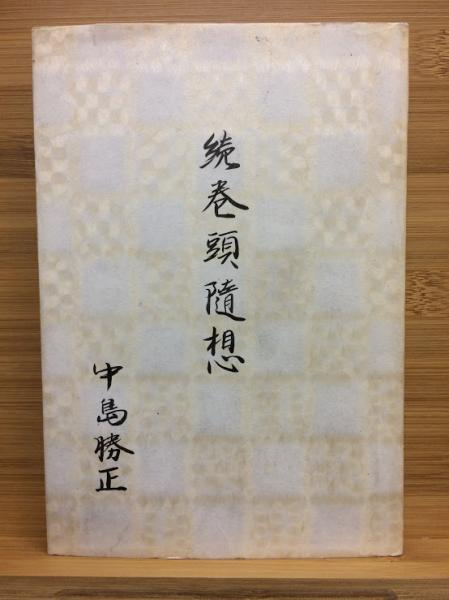 続巻頭隨想
中島勝正